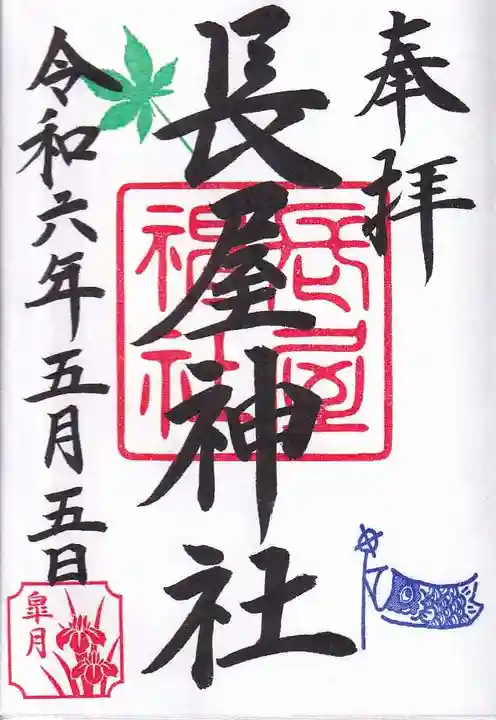 奉拝
長屋神社
長屋
神社
令和六年五月五日
皐月